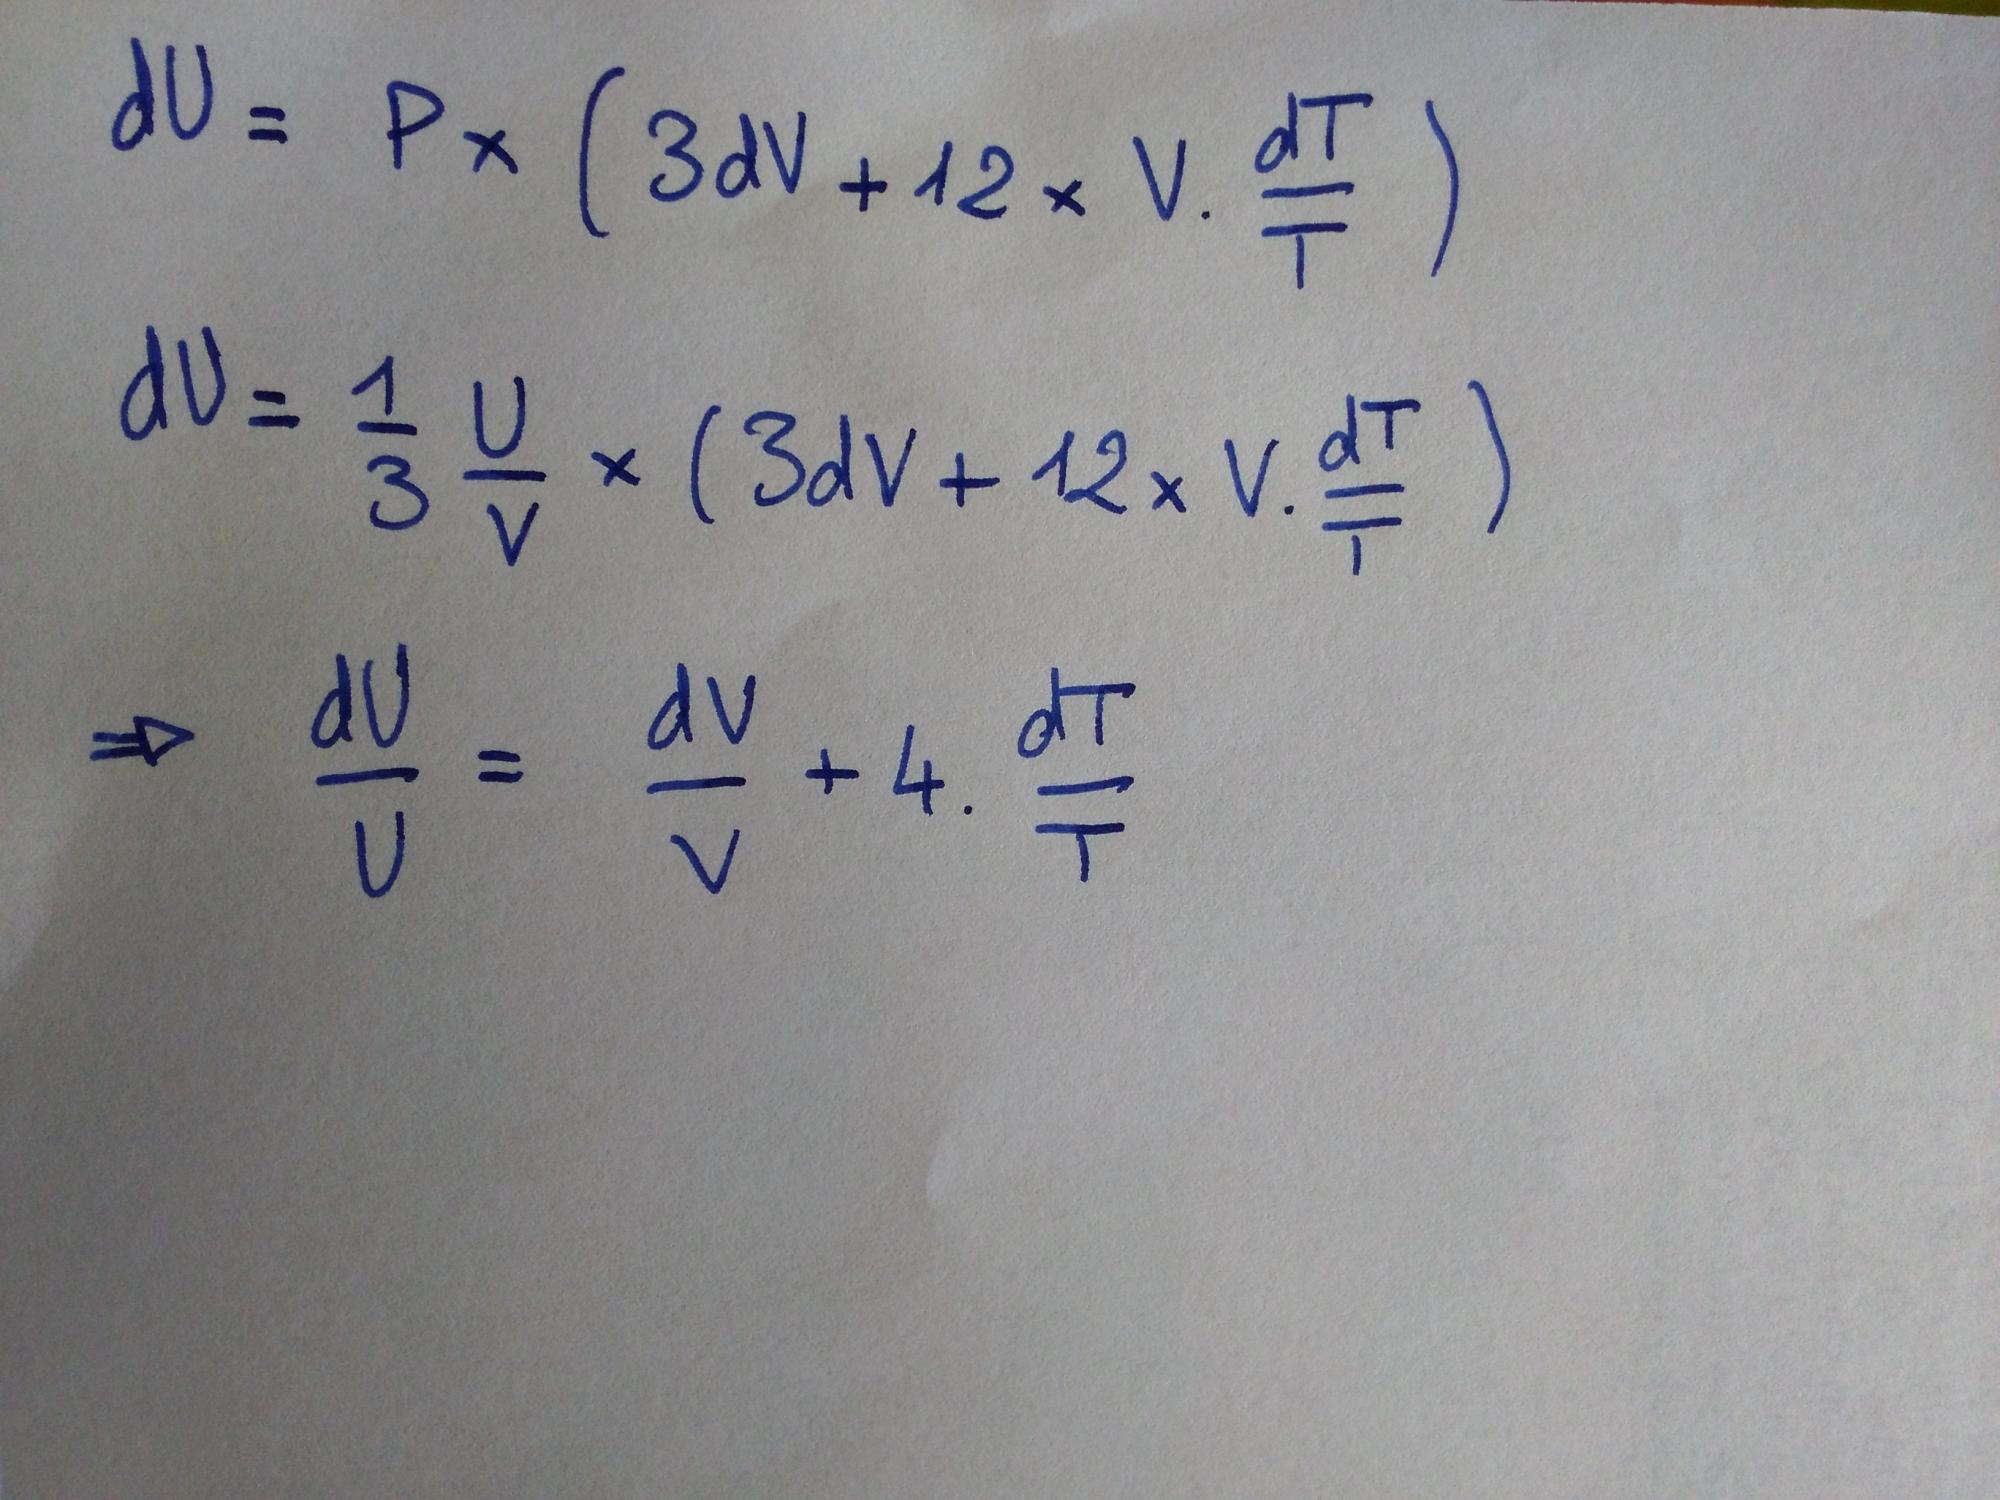 dU = P × ( 3dV + 12 × V. dT/T )
dU = 1/3 U/V × ( 3dV + 12 × V. dT/T )
⇒ dU/U = dV/V + 4. dT/T